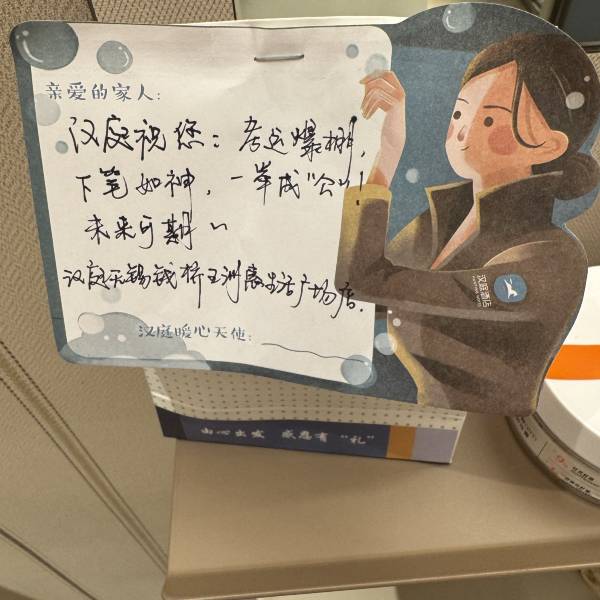 亲爱的家人:
汉庭祝您:考运爆棚,
下笔如神,一举成"公"!
未来可期
汉庭无锡钱桥五洲国际生活广场店.
汉庭暖心天使:
汉庭酒店
由心出发 感恩有"礼"